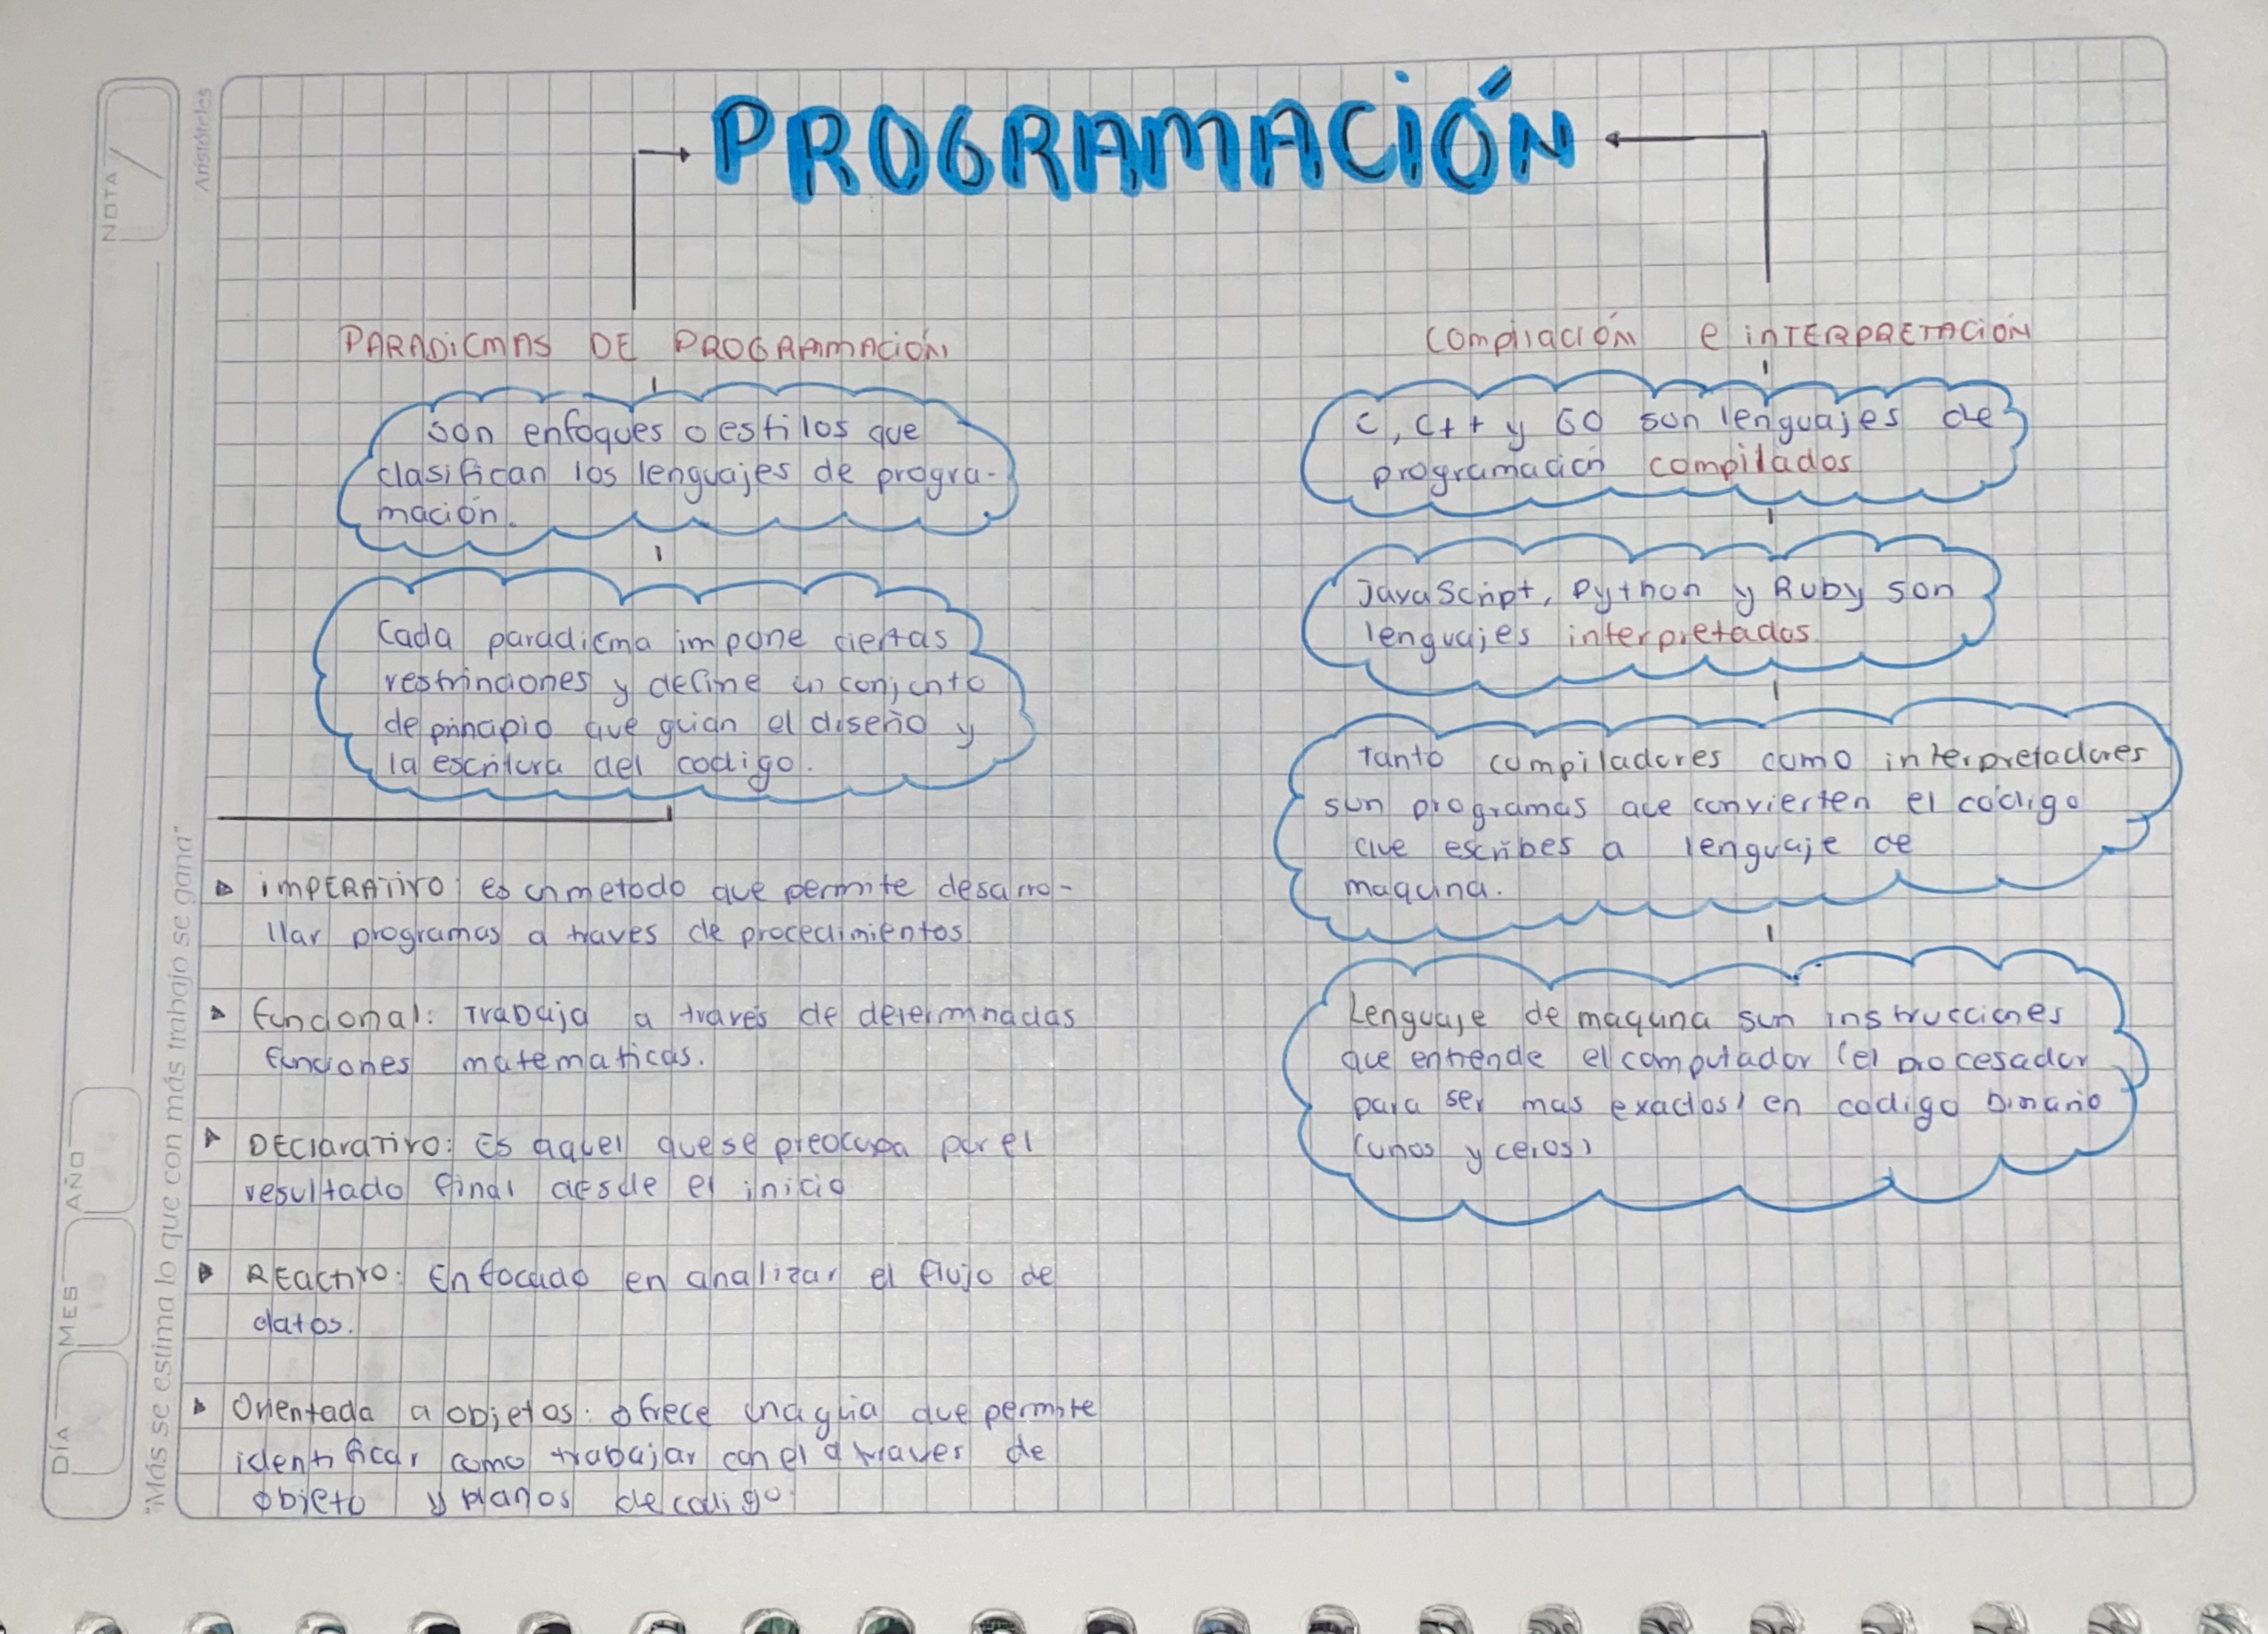 PROGRAMACIÓN
PARADICMAS DE PROGRAMACIÓN
son enfoques o estilos que
clasifican los lenguajes de progra-
mación.
Cada paradicma impone ciertas
restrinciones y define un conjunto
de principio que guian el diseño y
la escritura del codigo.
IMPERATIVO: es un metodo que permite desarro-
llar programas a traves de procedimientos
funcional: Trabaja a través de determinadas
funciones matematicas.
DEClarativo: Es aquel que se preocupa por el
resultado final desde el inicio
REActivo: Enfocado en analizar el flujo de
datos.
Orientada a objetos: ofrece una guia que permite
identificar como trabajar con el a traves de
objeto y planos de codigo.
compilación e INTERPRETACIÓN
C, C++ y GO son lenguajes de
programación compilados
JavaScript, Python y Ruby son
lenguajes interpretados.
Tanto compiladores como interpretadores
son programas que convierten el código
que escribes a lenguaje de
maquina.
Lenguaje de maquina son instrucciones
que entiende el computador (el procesador
para ser mas exactos) en codigo binario
(unos y ceros)
NOTA
Aristóteles
"Más se estima lo que con más trabajo se gana"
DÍA MES AÑO